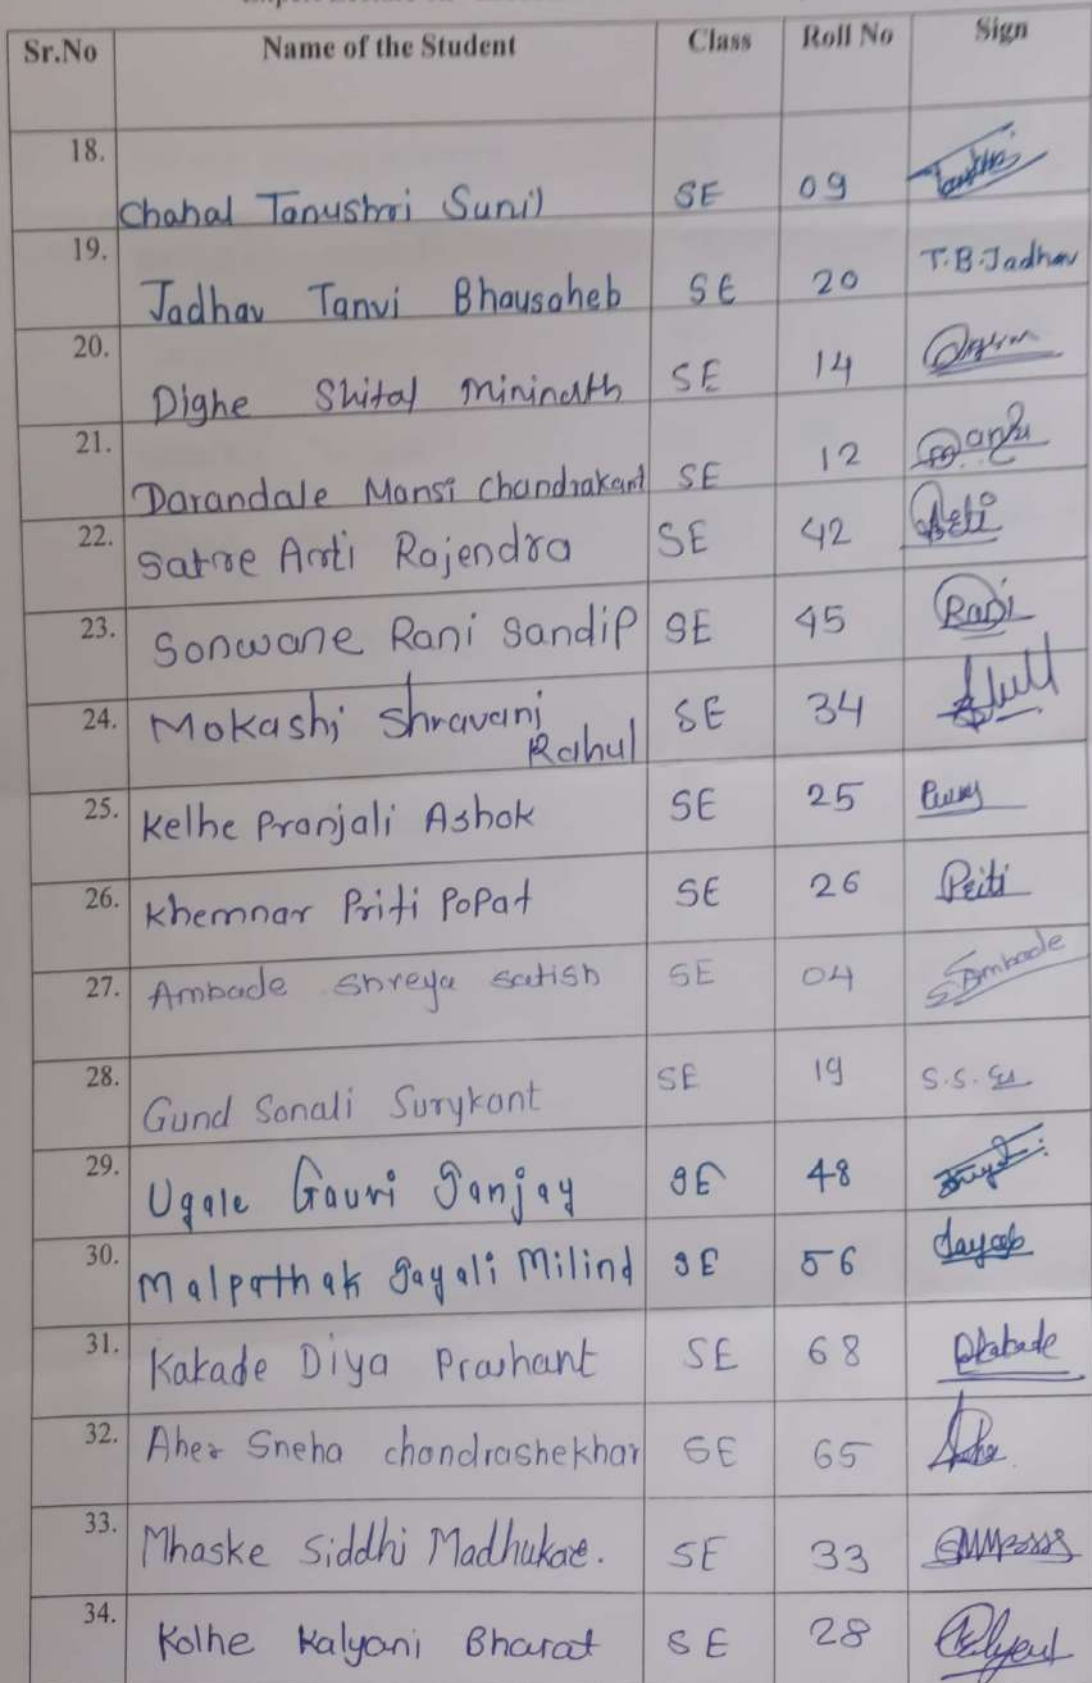 Sr.No Name of the Student Class Roll No Sign
18. Chahal Tanushri Sunil SE 09
19. Jadhav Tanvi Bhausaheb SE 20 T.B.Jadhav
20. Dighe Shital Mininath SE 14
21. Darandale Mansi Chandrakant SE 12
22. Satre Arti Rajendra SE 42 Arti
23. Sonwane Rani Sandip SE 45 Rani
24. Mokashi Shravani SE 34
Rahul
25. Kelhe Pranjali Ashok SE 25
26. Khemnar Priti Popat SE 26 Priti
27. Ambade Shreya Satish SE 04 S.Ambade
28. Gund Sonali Surykant SE 19 S.S.
29. Ugale Gauri Sanjay SE 48
30. Malpathak Sayali Milind SE 56
31. Kakade Diya Prashant SE 68 DKakade
32. Aher Sneha chandrashekhar SE 65
33. Mhaske Siddhi Madhukar. SE 33
34. Kolhe Kalyani Bharat SE 28